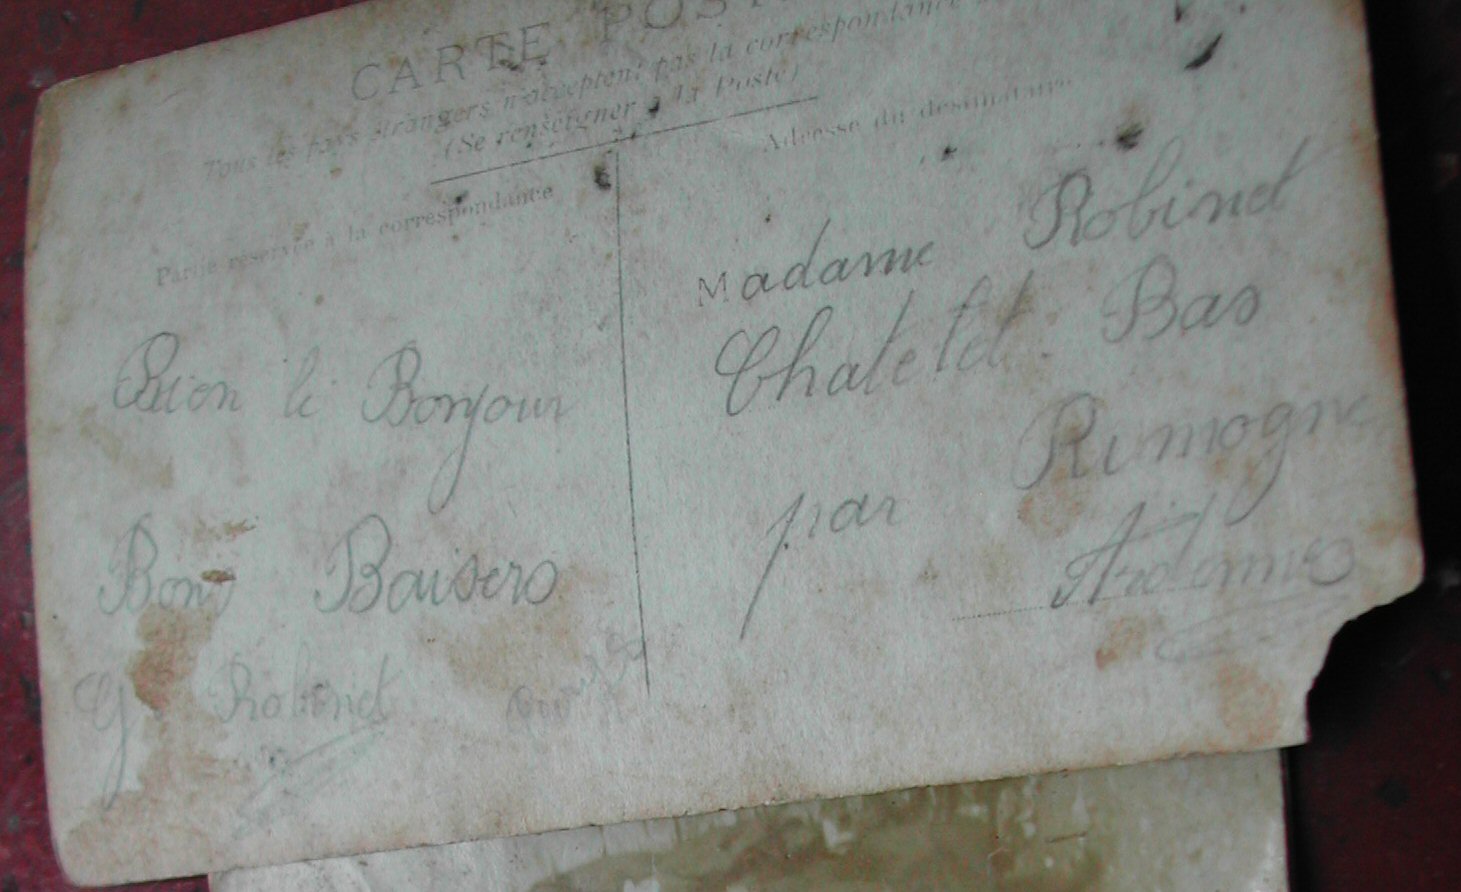 CARTE POST
Tous les pays étrangers n'acceptent pas la correspondance
(Se renseigner à la Poste)
Partie réservée à la correspondance
Adresse du destinataire
Bien le Bonjour
Bons Baisers
G. Robinet
Madame Robinet
Chatelet Bas
par Rimogne
Ardennes